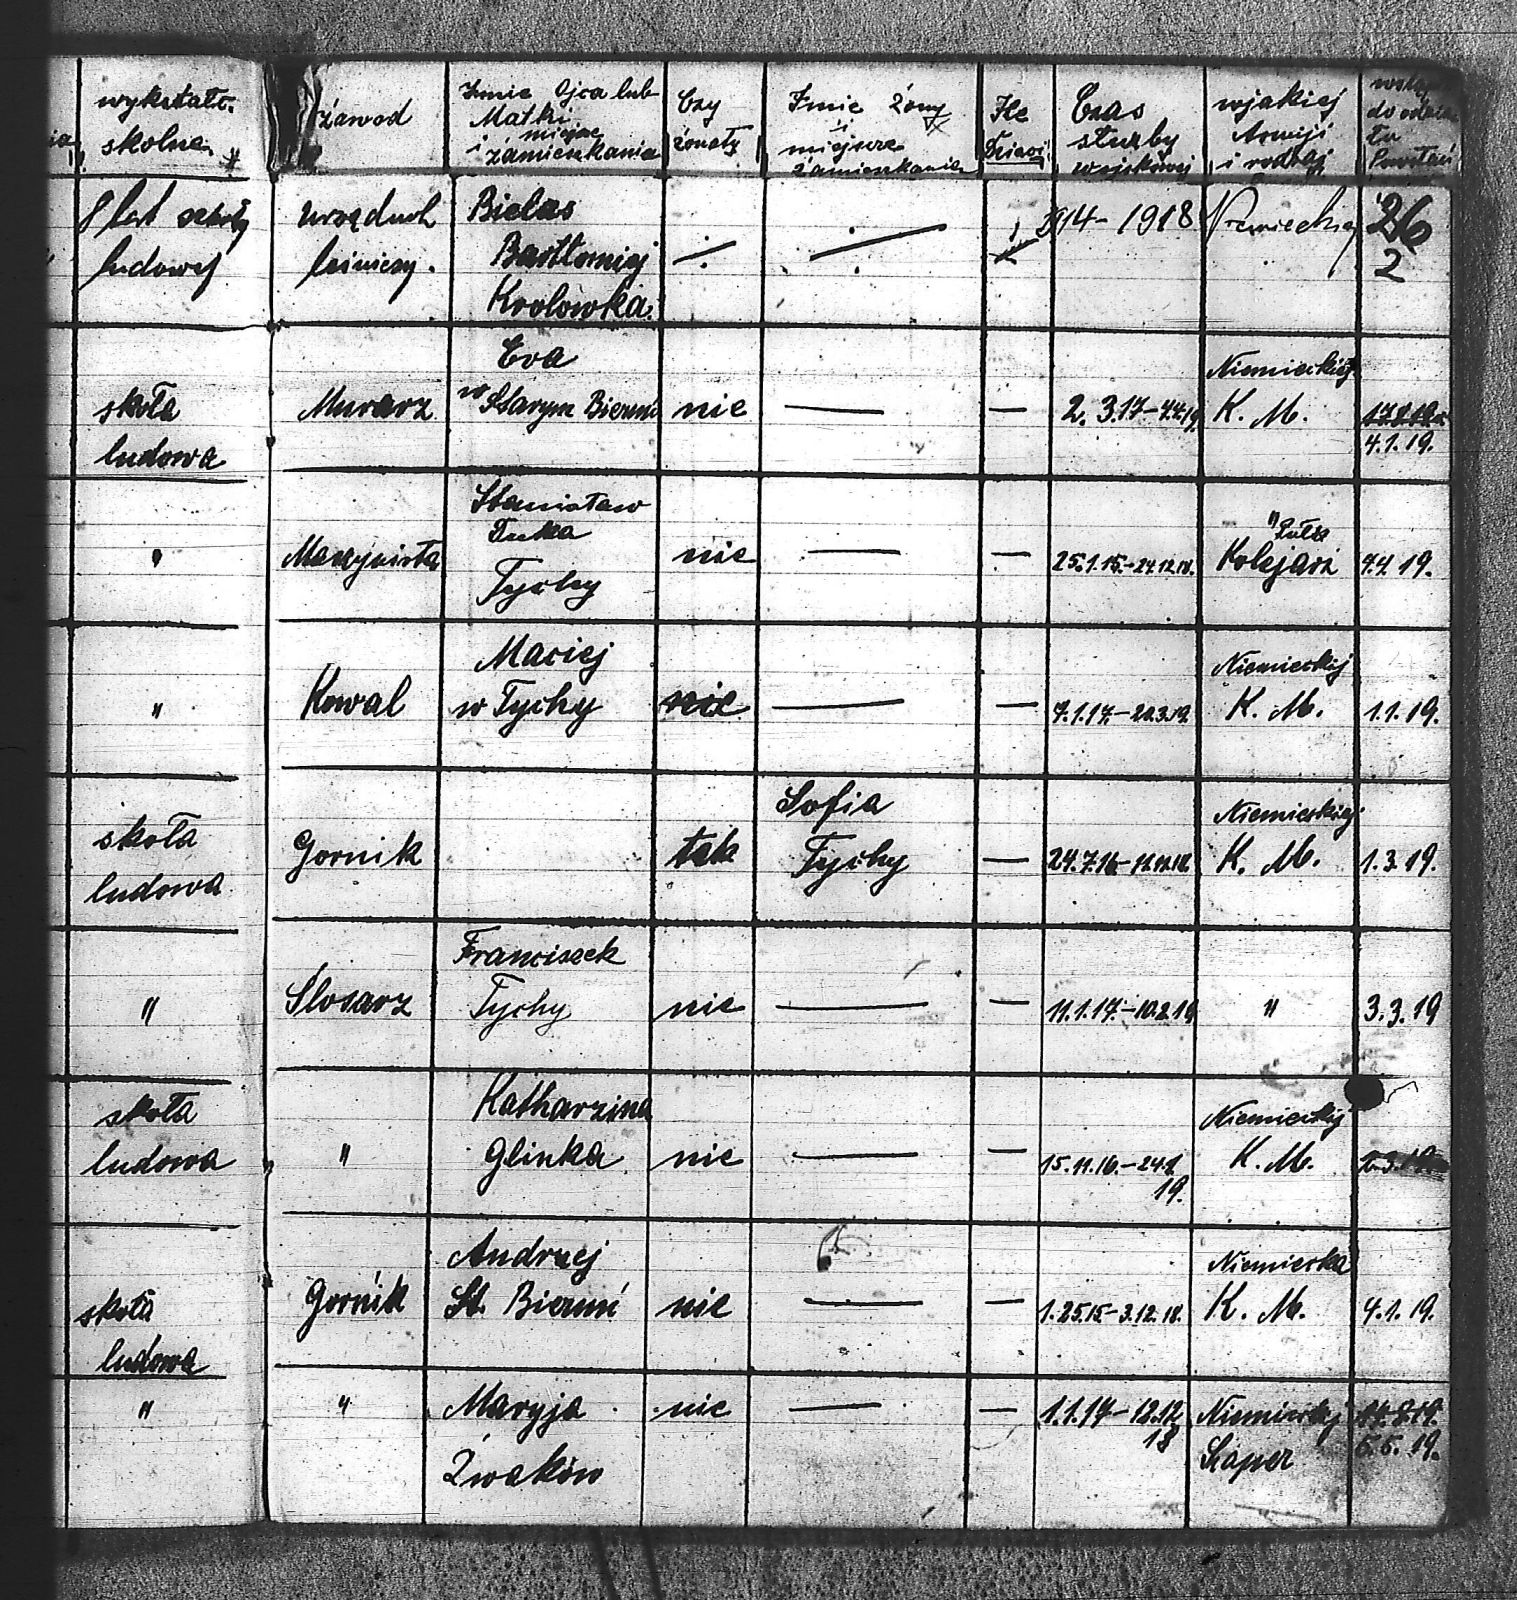 wykształc. skolne
Zawód
Imie Ojca lub Matki i miejsce zamieszkania
Czy żonaty
Imie żony i miejsce zamieszkania
Ile Dzieci
Czas służby wojskowej
wjakiej Armji i rodzaj
do
Powstań
8 lat szkoły ludowej
urzędnik leśniczy.
Bielas Bartłomiej Krolowka.
1914 - 1918
Niemieckiej
26 2
skoła ludowa
Murarz
Eva w Starym Bieruniu
nie
—
—
2. 3.17 - 4.4.19.
Niemieckiej K. M.
4.1.19.
"
Maszynista
Stanisław Tychy
nie
—
—
25.1.15. - 24.12.18.
" Pułk Kolejarz
4.4.19.
"
Kowal
Maciej w Tychy
nie
—
—
7.1.17. - 20.3.19.
Niemieckiej K. M.
1.1.19.
skoła ludowa
Gornik
tak
Sofia Tychy
—
24.7.16 -
Niemieckiej K. M.
1.3.19.
"
Slosarz
Franciszek Tychy
nie
—
—
11.1.17. - 10.2.19.
"
3.3.19
skoła ludowa
"
Katharzina Glinka
nie
—
—
15.11.16. - 24.1. 19.
Niemieckiej K. M.
skoła ludowa
Gornik
Andrzej St. Bieruń
nie
—
—
3.12.18.
Niemiecka K. M.
4.1.19.
"
"
Maryja Żwaków
nie
—
—
1.1.17 - 12.12 18
Niemieckiej Saper
17.8.19. 5.5.19.